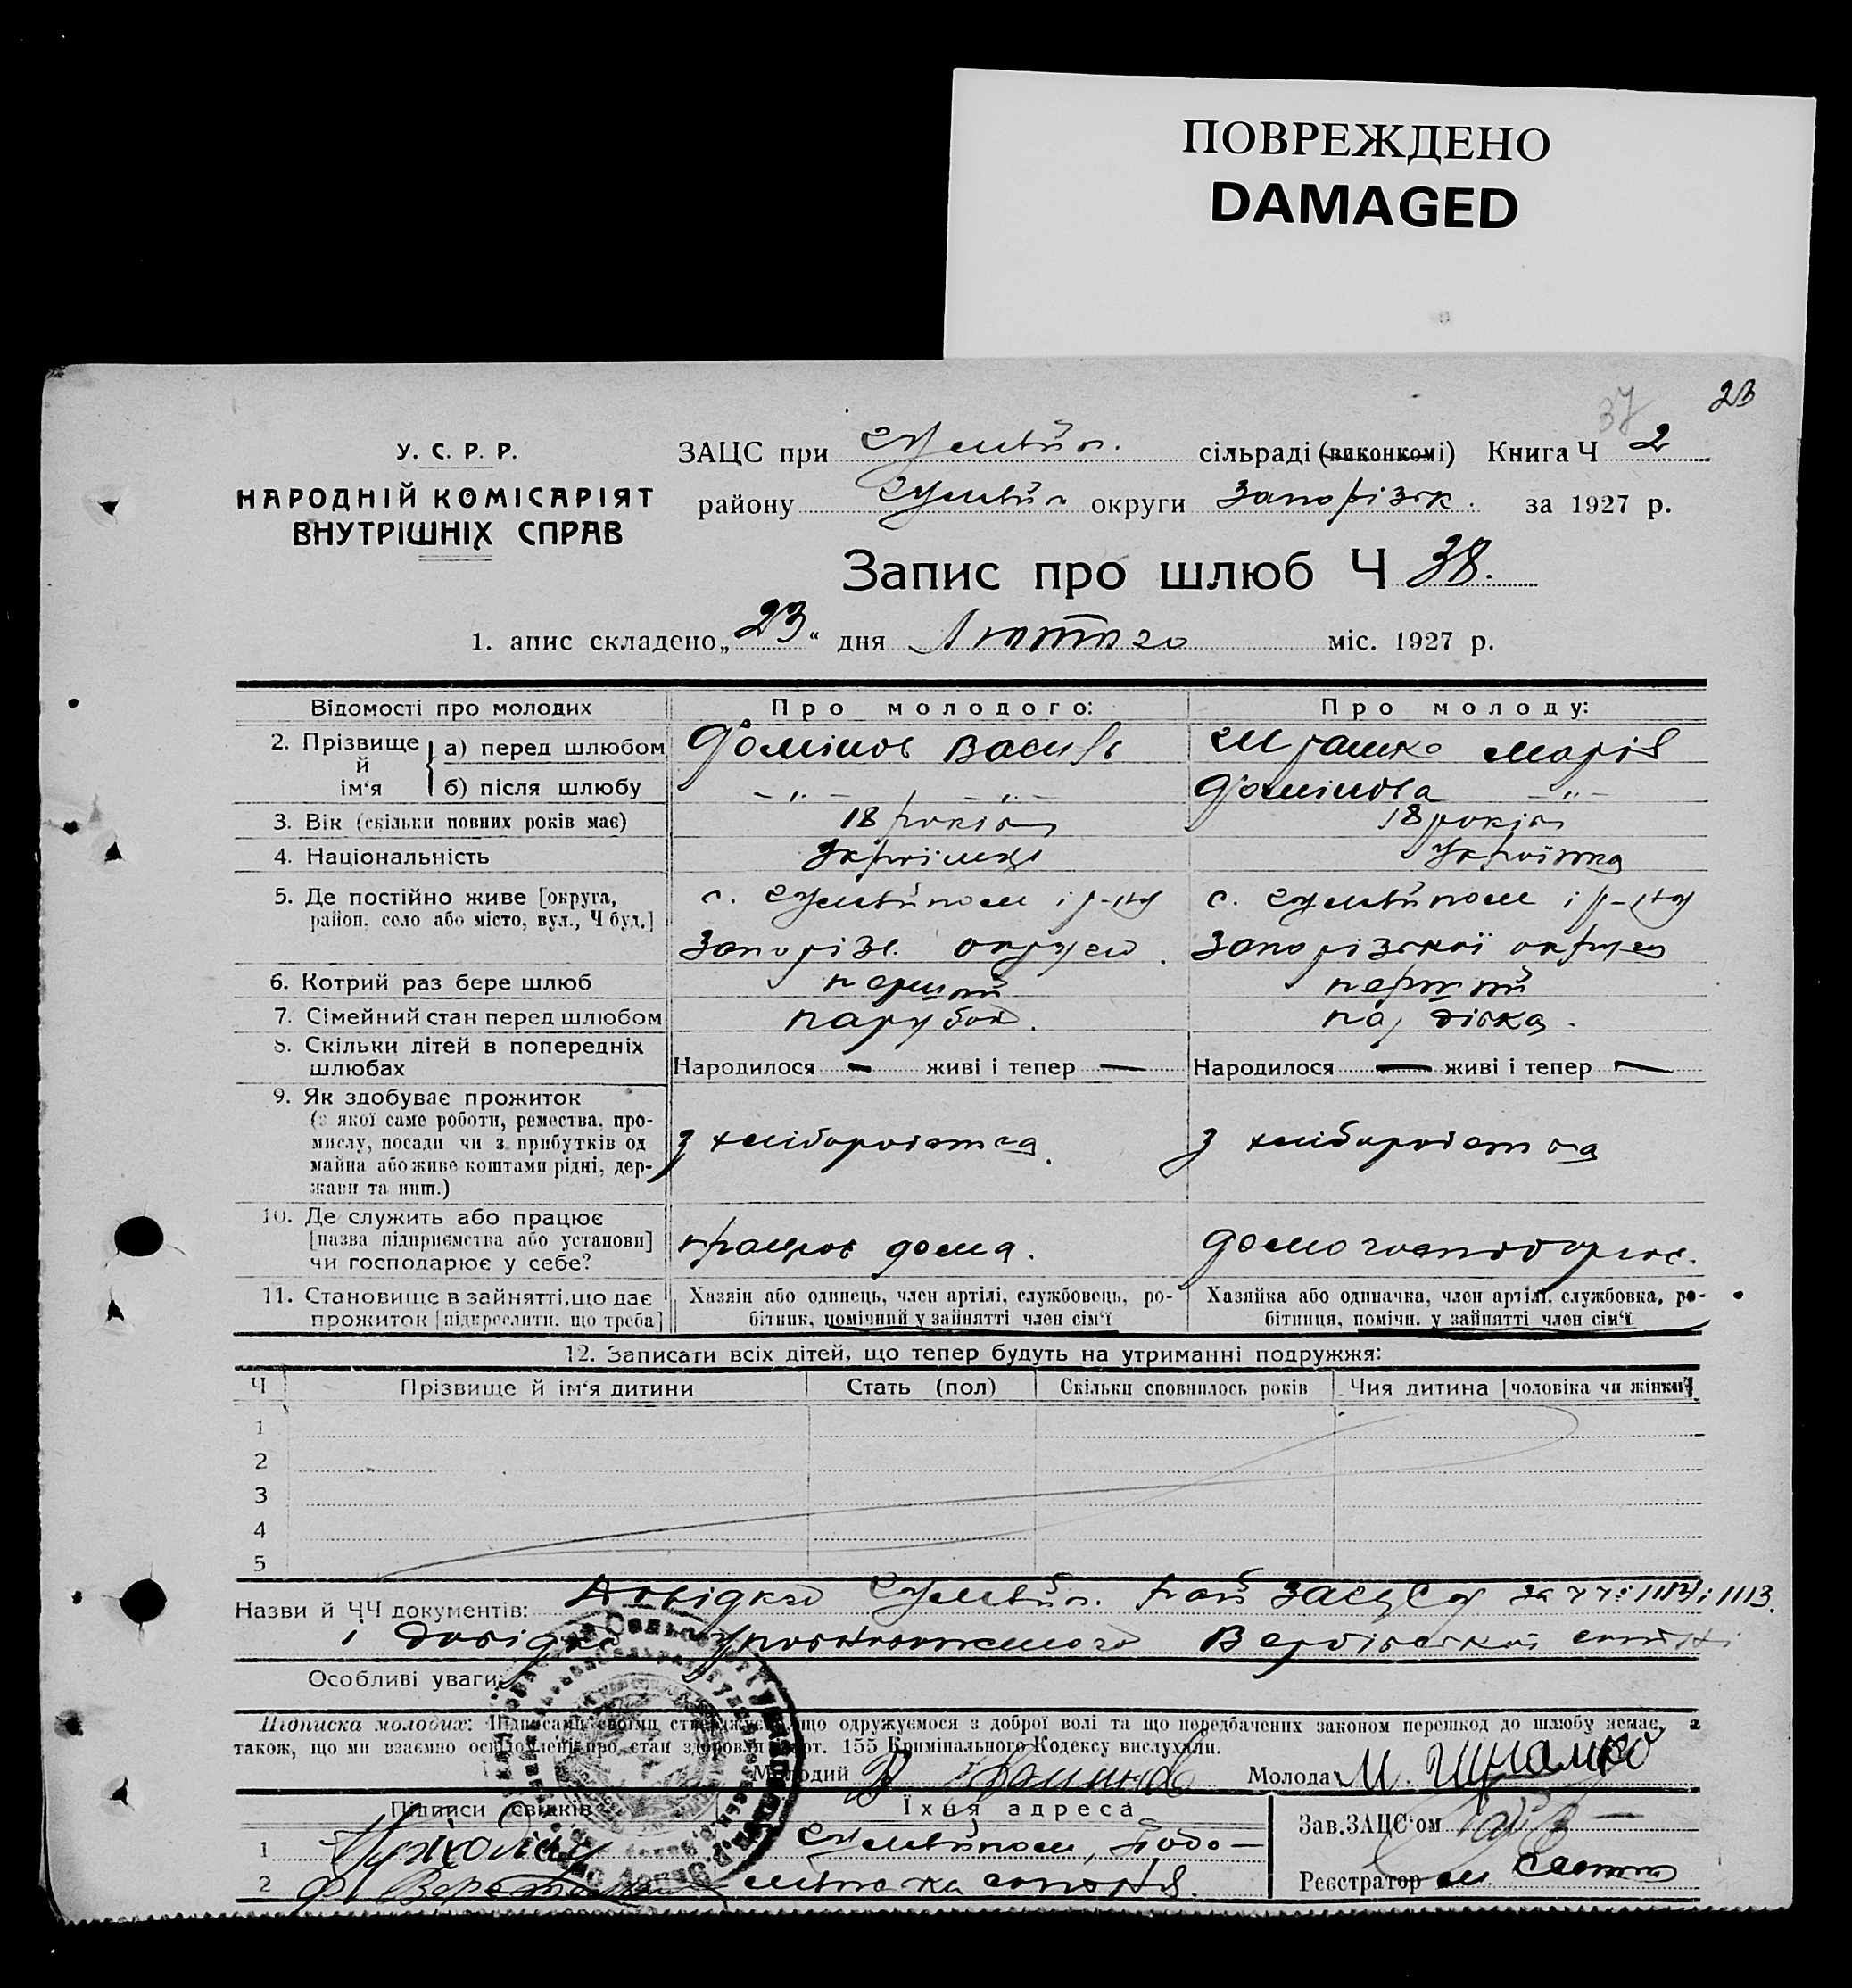 ПОВРЕЖДЕНО
DAMAGED
37 23
У. С. Р. Р.
НАРОДНІЙ КОМІСАРІЯТ
ВНУТРІШНІХ СПРАВ
ЗАЦС при Гуляйп. сільраді (виконкомі) Книга Ч 2
району Гуляйп округи Запорізьк. за 1927 р.
Запис про шлюб Ч 38.
1. апис складено „23“ дня Лютого міс. 1927 р.
Відомості про молодих Про молодого: Про молоду:
2. Прізвище й ім‘я а) перед шлюбом Василь Марія
б) після шлюбу – „ – – „ – – „ –
3. Вік (скільки повних років має) 18 років 18 років
4. Національність Українець Українка
5. Де постійно живе [округа, район, село або місто, вул., Ч буд.] с. Гуляйполе і р-ну с. Гуляйполе і р-ну
Запорізь. округи. Запорізької округи
6. Котрий раз бере шлюб перший перший
7. Сімейний стан перед шлюбом парубок. дівка.
8. Скільки дітей в попередніх шлюбах Народилося — живі і тепер — Народилося — живі і тепер —
9. Як здобуває прожиток
(з якої саме роботи, ремества, про-
мислу, посади чи з прибутків од
майна або живе коштами рідні, дер-
жави та инш.)
з хліборобства. з хліборобства
10. Де служить або працює
[назва підприємства або установи]
чи господарює у себе?
працює дома. домогосподарює.
11. Становище в зайнятті, що дає
прожиток [підкреслити, що треба]
Хазяін або одинець, член артілі, службовець, ро-
бітник, помічний у зайнятті член сім‘ї
Хазяйка або одиначка, член артілі, службовка, ро-
бітниця, помічн. у зайнятті член сім‘ї
12. Записати всіх дітей, що тепер будуть на утриманні подружжя:
Ч Прізвище й ім‘я дитини Стать (пол) Скільки сповнилось років Чия дитина [чоловіка чи жінки]
1
2
3
4
5
Назви й ЧЧ документів: Довідка Гуляйп. рай ЗАЦСу за ЧЧ: 1112 і 1113.
і довідка Вербівської
Особливі уваги:
Підписка молодих: Підписами своїми стверджуємо, що одружуємося з доброї волі та що передбачених законом перешкод до шлюбу немає, а
також, що ми взаємно освідомлені про стан здоровля й арт. 155 Кримінального Кодексу вислухали.
Молодий Молода М.
Підписи свідків Їхня адреса Зав. ЗАЦС‘ом
1 Гуляйполе,
2 Реєстратор